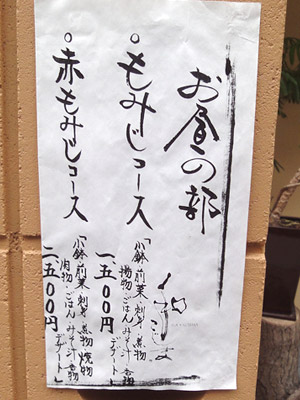 お昼の部
もみじコース
「小鉢・前菜・刺身・煮物
揚物・ごはん・みそ汁・香物
デザート」
一、五００円
赤もみじコース
「小鉢・前菜・刺身・煮物・焼物
肉物・ごはん・みそ汁・香物
デザート」
二、五００円